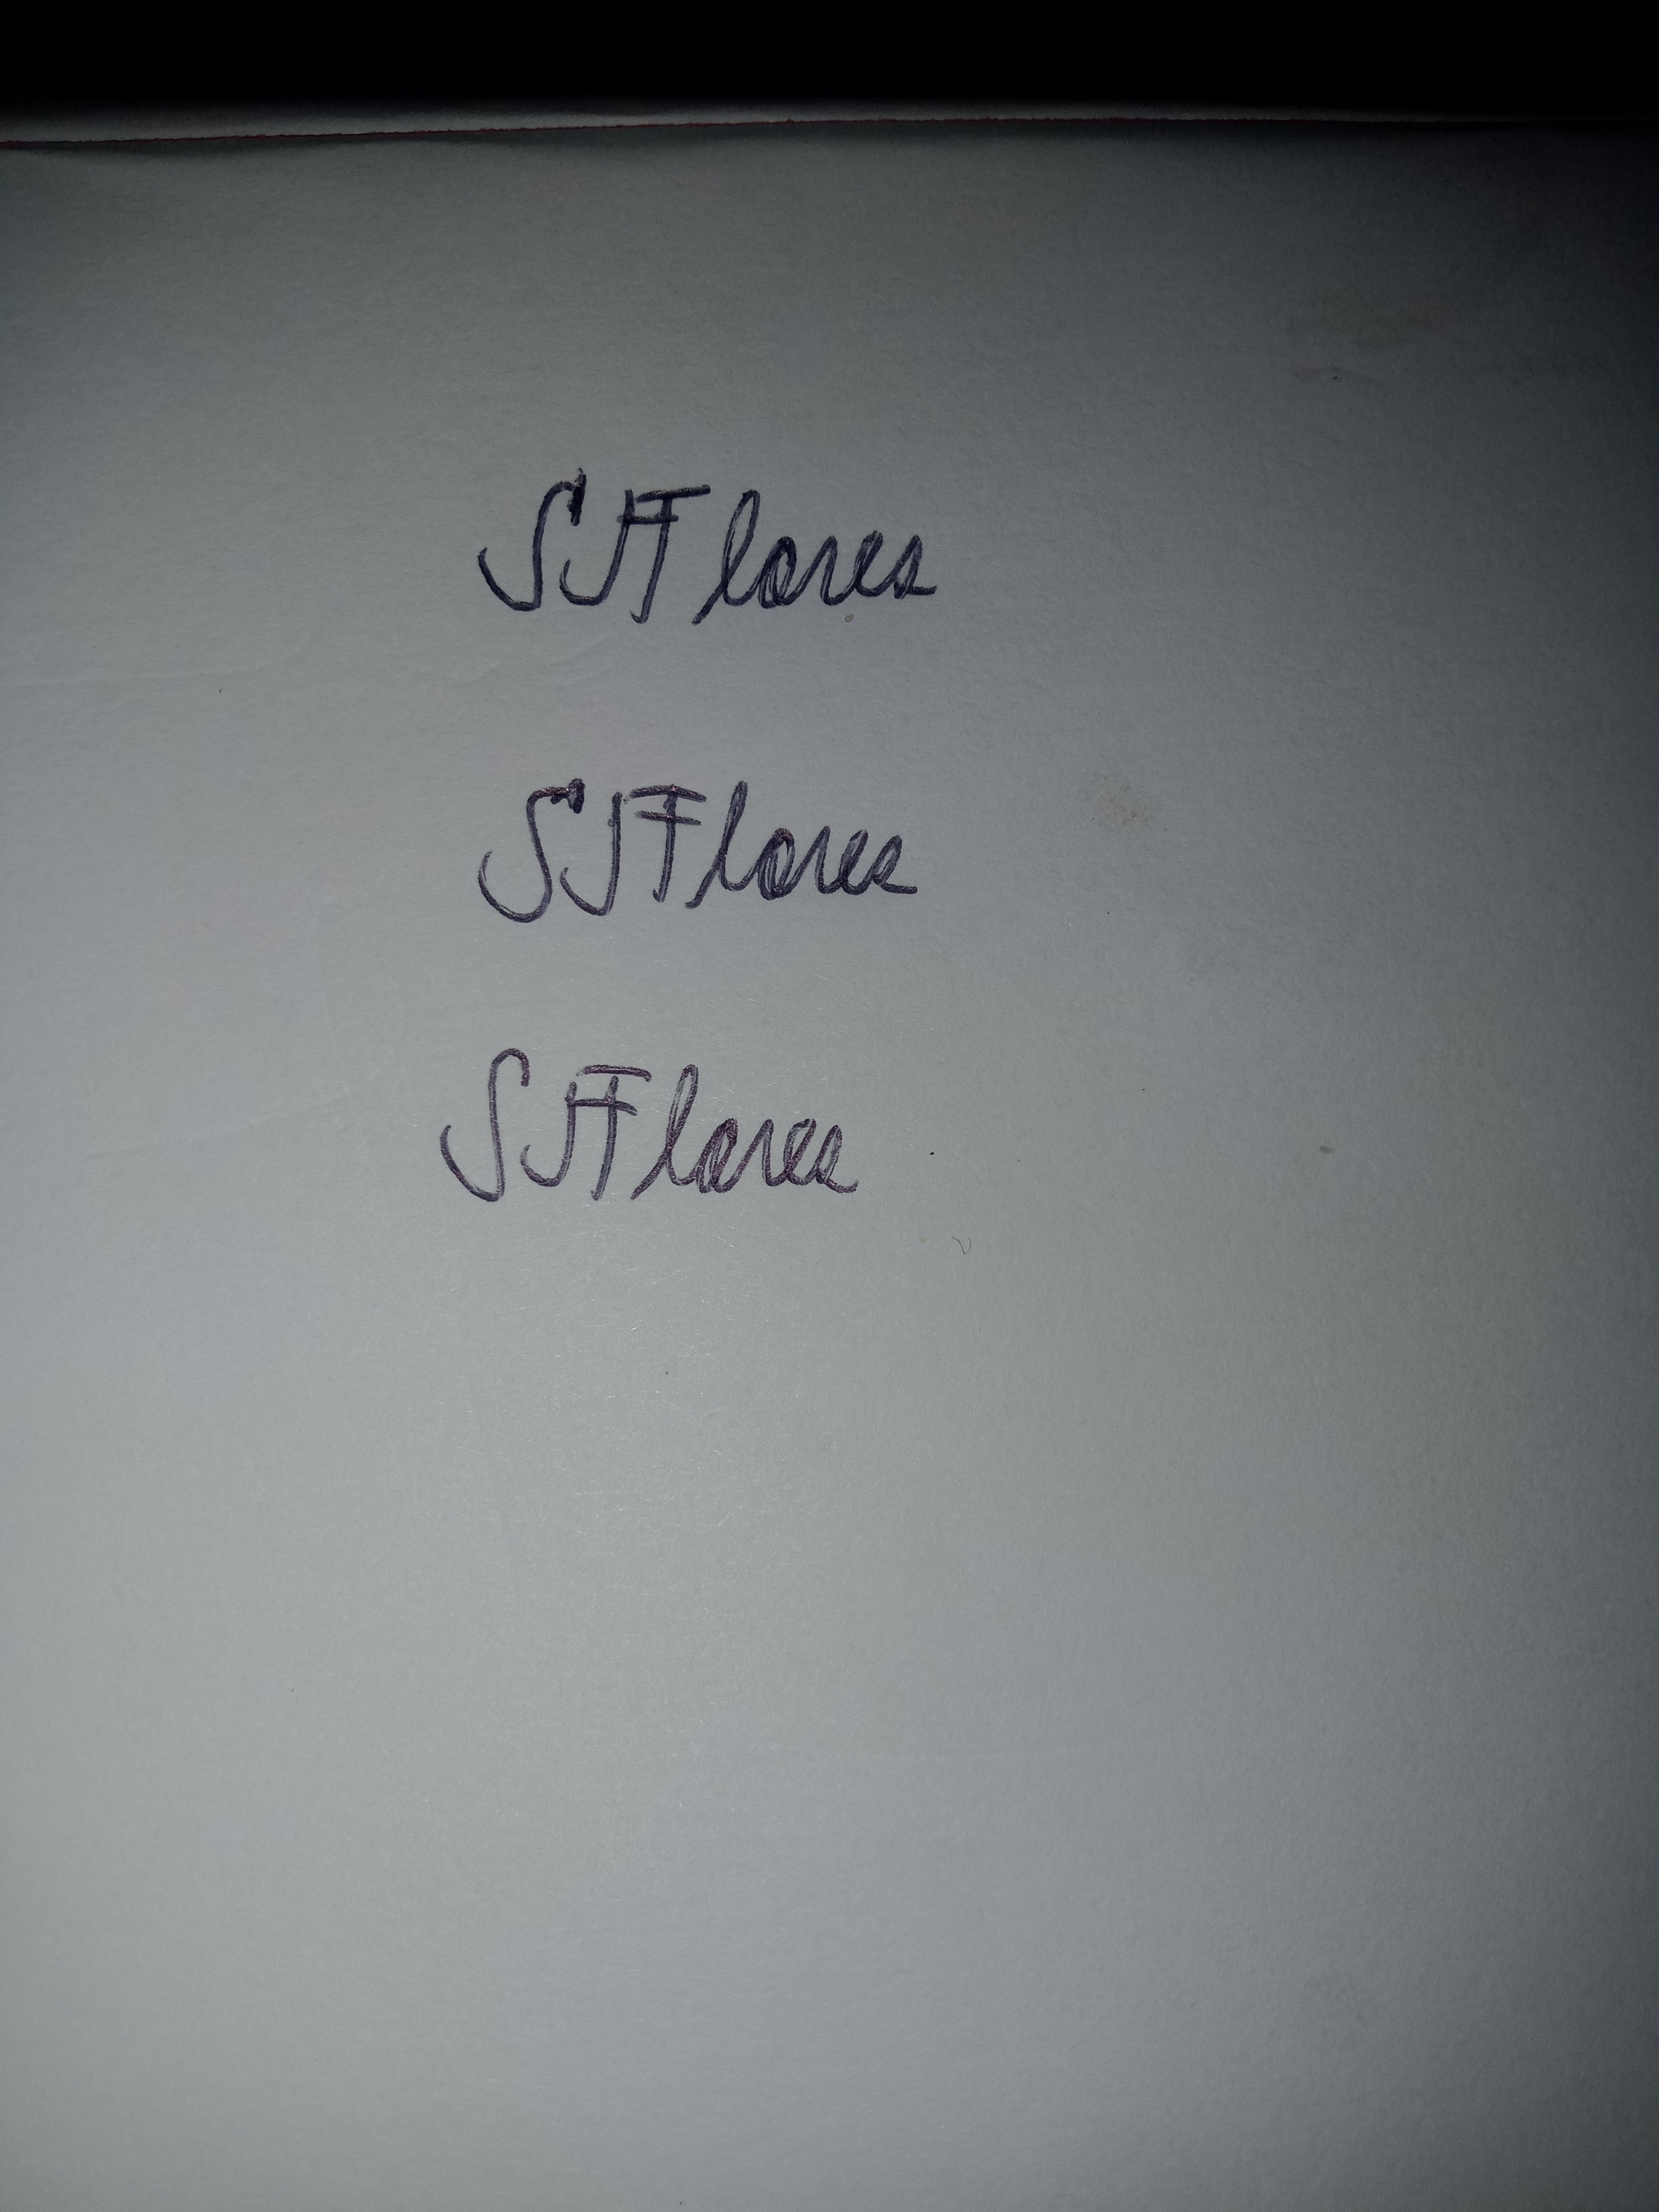 SJFlores
SJFlores
SJFlores